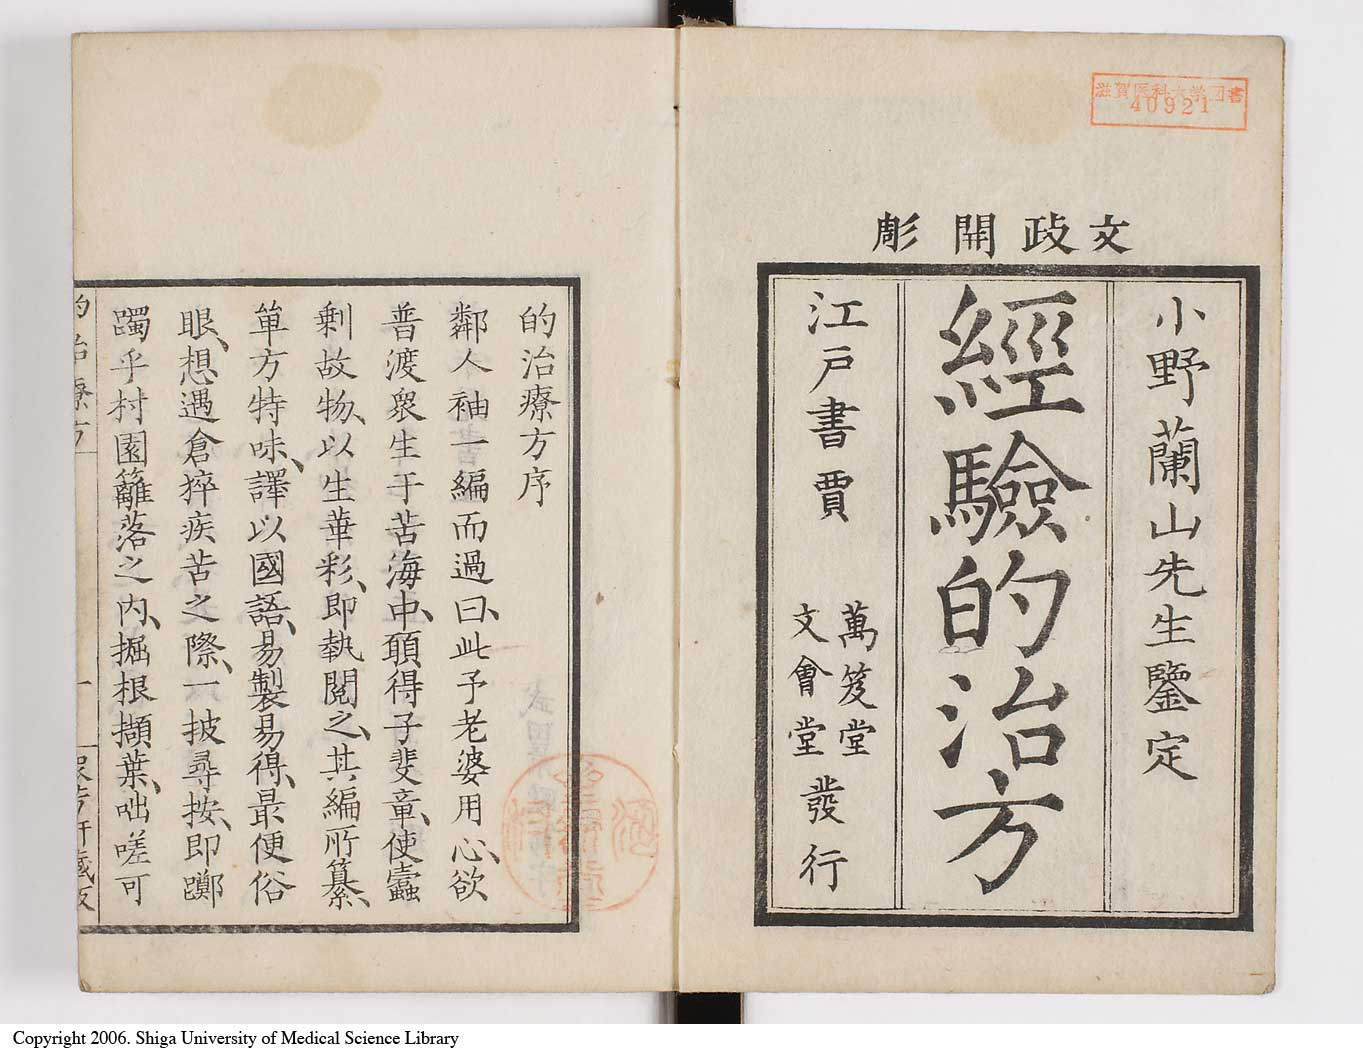 滋賀医科大学図書
40921
文政開彫
小野蘭山先生鑒定
經驗的治方
江戸書賈
萬笈堂
文會堂
發行
的治療方序
鄰人袖一編而過曰、此予老婆用心、欲
普渡衆生于苦海中、願得子斐章、使蠧
剰故物、以生華彩、即執閲之、其編所纂、
單方特味、譯以國語、易製易得、最便俗
眼、想遇倉猝疾苦之際、一披尋按、即躑
躅乎村園籬落之内、掘根擷葉、咄嗟可
的治療方
一
Copyright 2006. Shiga University of Medical Science Library